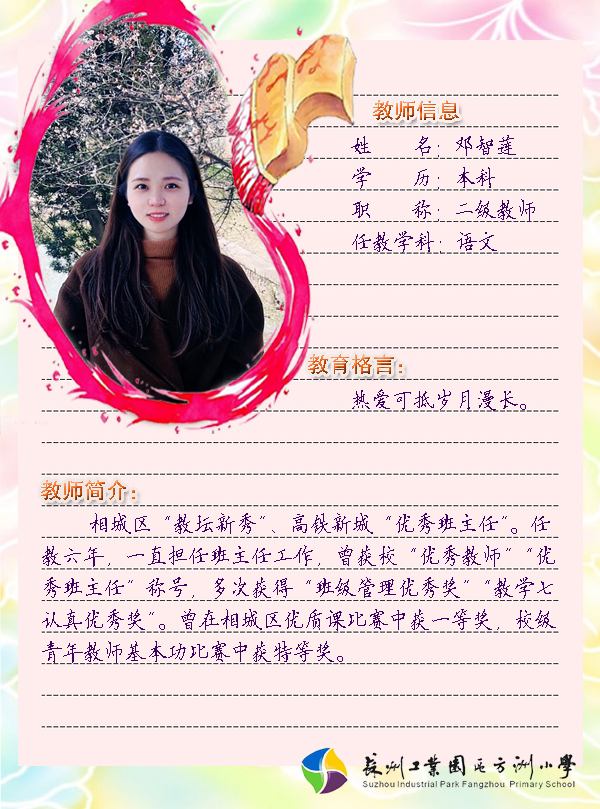 教师信息
姓　　名：邓智莲
学　　历：本科
职　　称：二级教师
任教学科：语文
教育格言：
热爱可抵岁月漫长。
教师简介：
相城区“教坛新秀”、高铁新城“优秀班主任”。任
教六年，一直担任班主任工作，曾获校“优秀教师”“优
秀班主任”称号，多次获得“班级管理优秀奖”“教学七
认真优秀奖”。曾在相城区优质课比赛中获一等奖，校级
青年教师基本功比赛中获特等奖。
苏州工业园区方洲小学
Suzhou Industrial Park Fangzhou Primary School